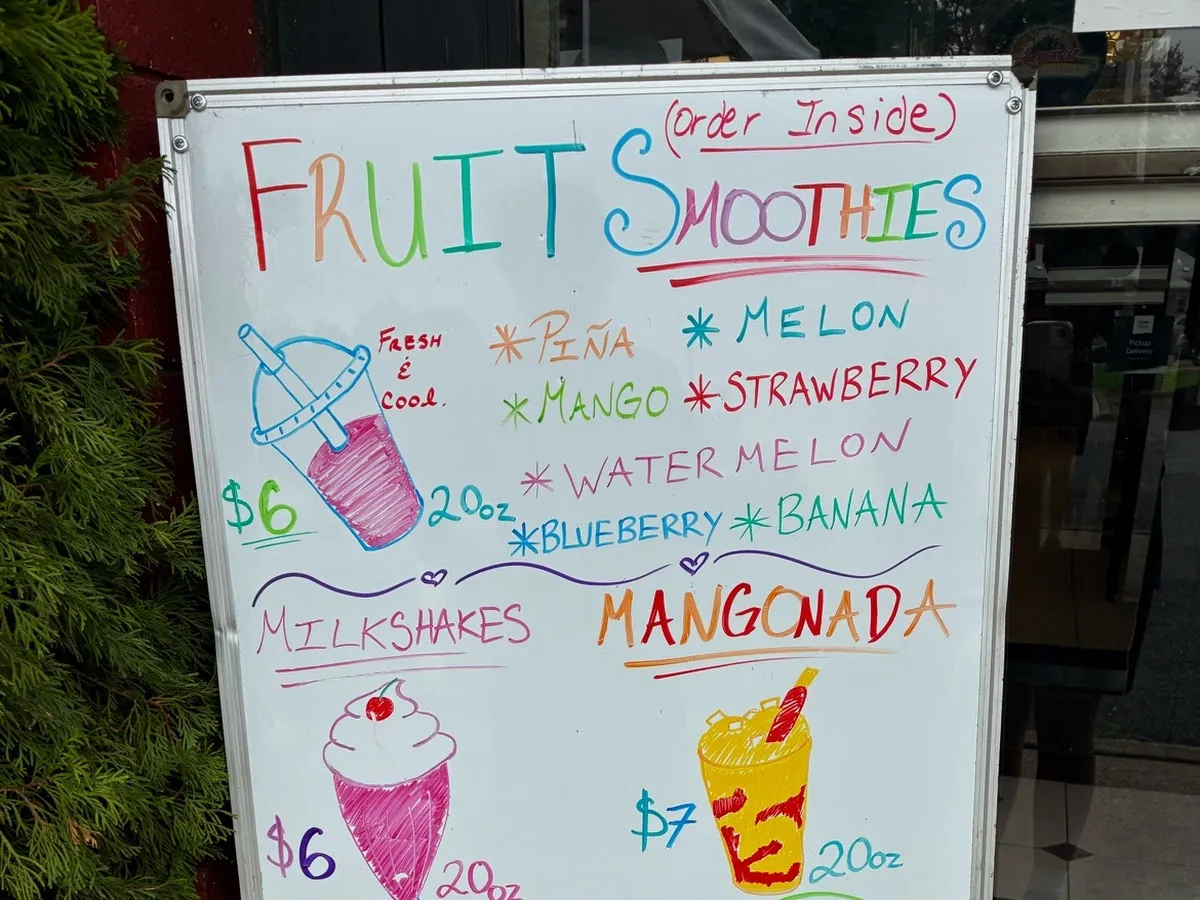 (Order Inside)
FRUIT SMOOTHIES
FRESH
&
Cool.
* PIÑA * MELON
* MANGO * STRAWBERRY
* WATERMELON
* BLUEBERRY * BANANA
$6 20oz
MILKSHAKES
$6 20oz
MANGONADA
$7 20oz
Pickup
Delivery